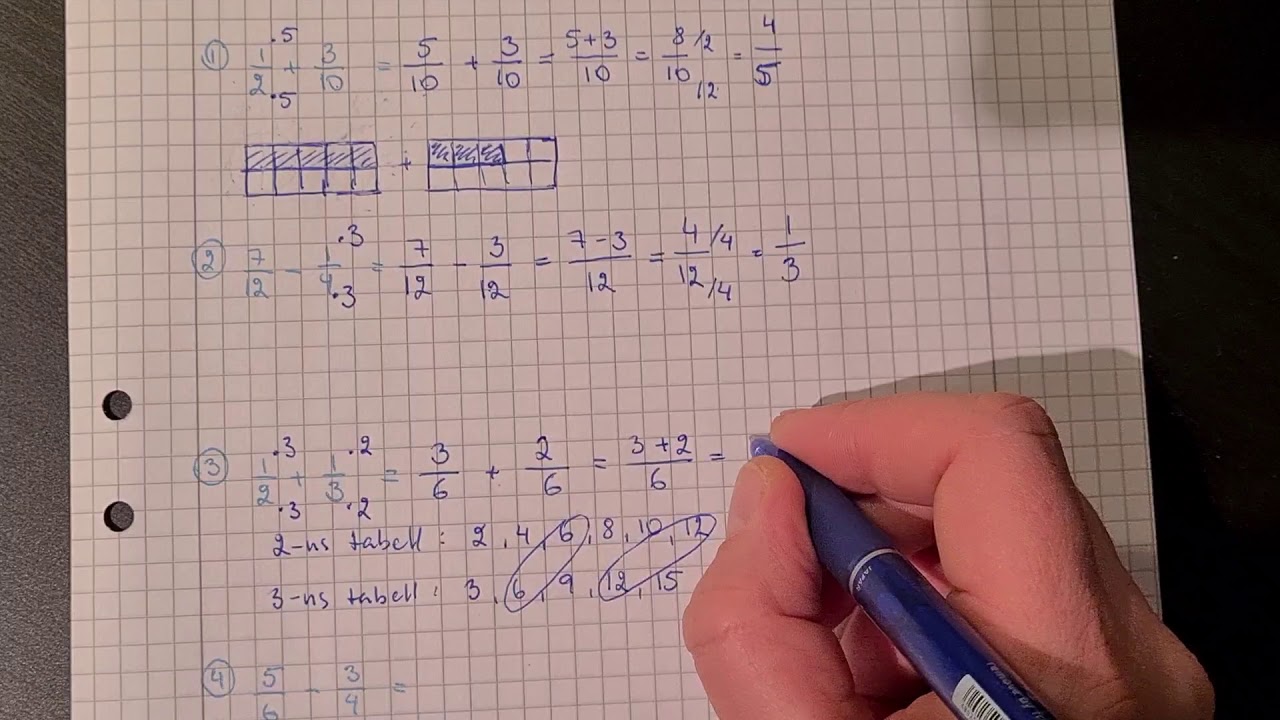 ① 1·5/2·5 + 3/10 = 5/10 + 3/10 = 5+3/10 = 8/2/10/2 = 4/5
+
② 7/12 - 1·3/4·3 = 7/12 - 3/12 = 7-3/12 = 4/4/12/4 = 1/3
③ 1·3/2·3 + 1·2/3·2 = 3/6 + 2/6 = 3+2/6 =
2-ns tabell: 2, 4, 6, 8, 10, 12
3-ns tabell: 3, 6, 9, 12, 15
④ 5/6 - 3/4 =
JAPAN